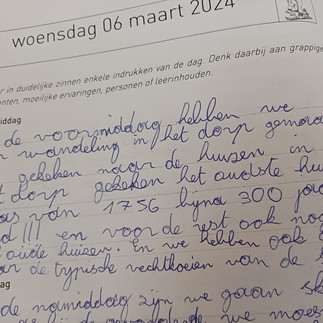 woensdag 06 maart 2024
r in duidelijke zinnen enkele indrukken van de dag. Denk daarbij aan grappige
nten, moeilijke ervaringen, personen of leerinhouden.
iddag
de voormiddag hebben we
n wandeling in het dorp gemaa
gekeken naar de huizen in
t dorp gekeken het oudste hu
as van 1756 bijna 300 jaa
d!!! en voor de rest ook no
oude huizen. En we hebben ook
de typische vechtkoeien van de
ag
de namiddag zijn we gaan sk
we moes